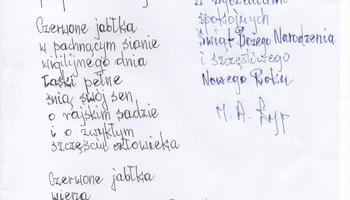 Czerwone jabłka
w pachnącym sianie
wigilijnego dnia
Łaski pełne
śnią swój sen
o rajskim sadzie
i o zwykłym
szczęściu człowieka
Czerwone jabłka
wierzą
spokojnych
Świąt Bożego Narodzenia
i szczęśliwego
Nowego Roku
M. A.